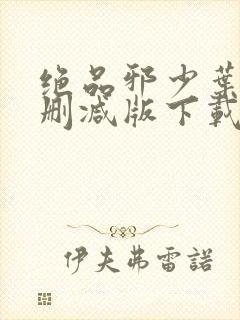 绝品邪少葉
删减版下載
伊夫弗雷諾